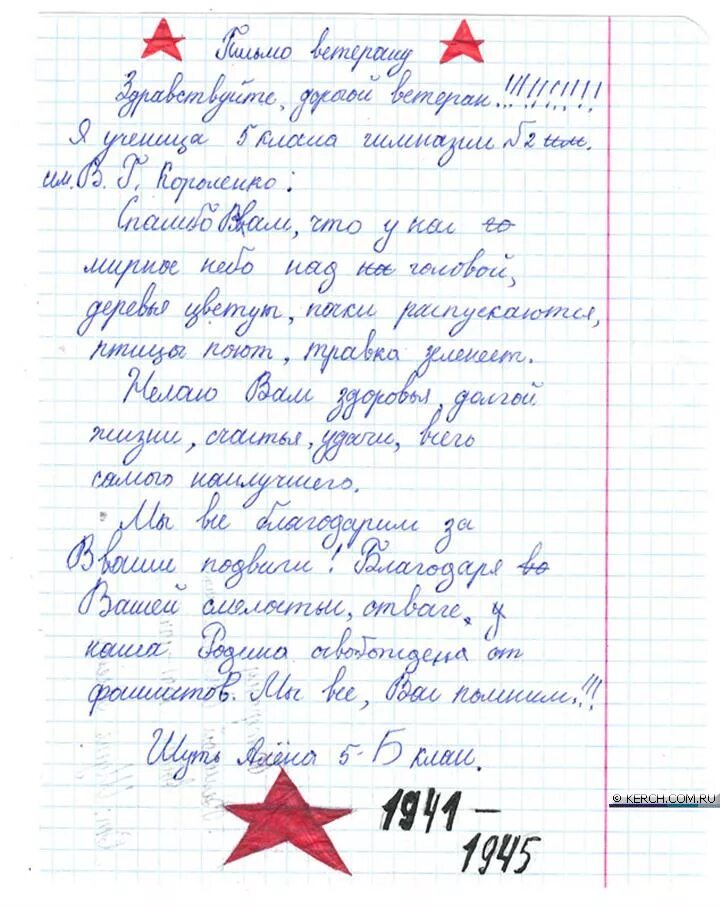 Письмо ветерану
Здравствуйте, дорогой ветеран!!!!!!!!!
Я ученица 5 класса гимназии №2 им.
им. В. Г. Короленко:
Спасибо Вам, что у нас го
мирное небо над на головой,
деревья цветут, почки распускаются,
птицы поют, травка зеленеет.
Желаю Вам здоровья, долгой
жизни, счастья, удачи, всего
самого наилучшего.
Мы все благодарим за
Вваши подвиги! Благодаря во
Вашей смелостьи, отваге, у
наша Родина освобождена от
фашистов. Мы все, Вас помним!!!
Шуть Алёна 5-Б класс.
1941 –
1945
© KERCH.COM.RU